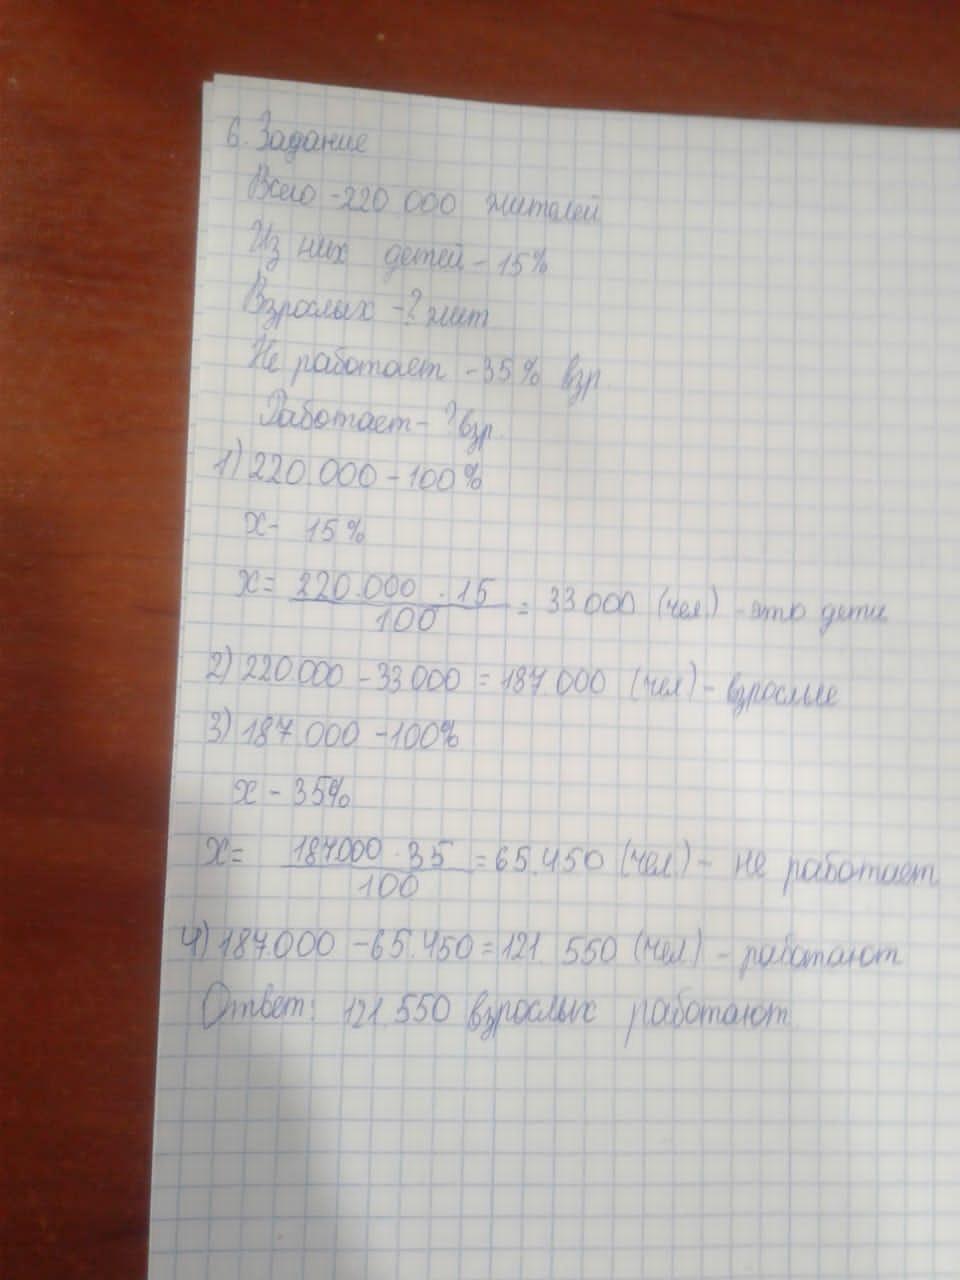 6. Задание
Всего - 220 000 жителей
Из них детей - 15%
Взрослых - ? жит
Не работает - 35% взр.
Работает - ? взр.
1) 220.000 - 100%
x - 15%
x = 220.000 · 15 / 100 = 33 000 (чел) - это дети
2) 220 000 - 33 000 = 187 000 (чел) - взрослые
3) 187 000 - 100%
x - 35%
x = 187000 · 35 / 100 = 65.450 (чел) - не работает
4) 187.000 - 65.450 = 121.550 (чел) - работают
Ответ: 121.550 взрослых работают